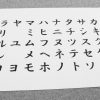 ラヤマハナタサカ
リ ミヒニチシキ
ルユムフヌツスク
レ メヘネテセケ
ロヨモホノトソコ